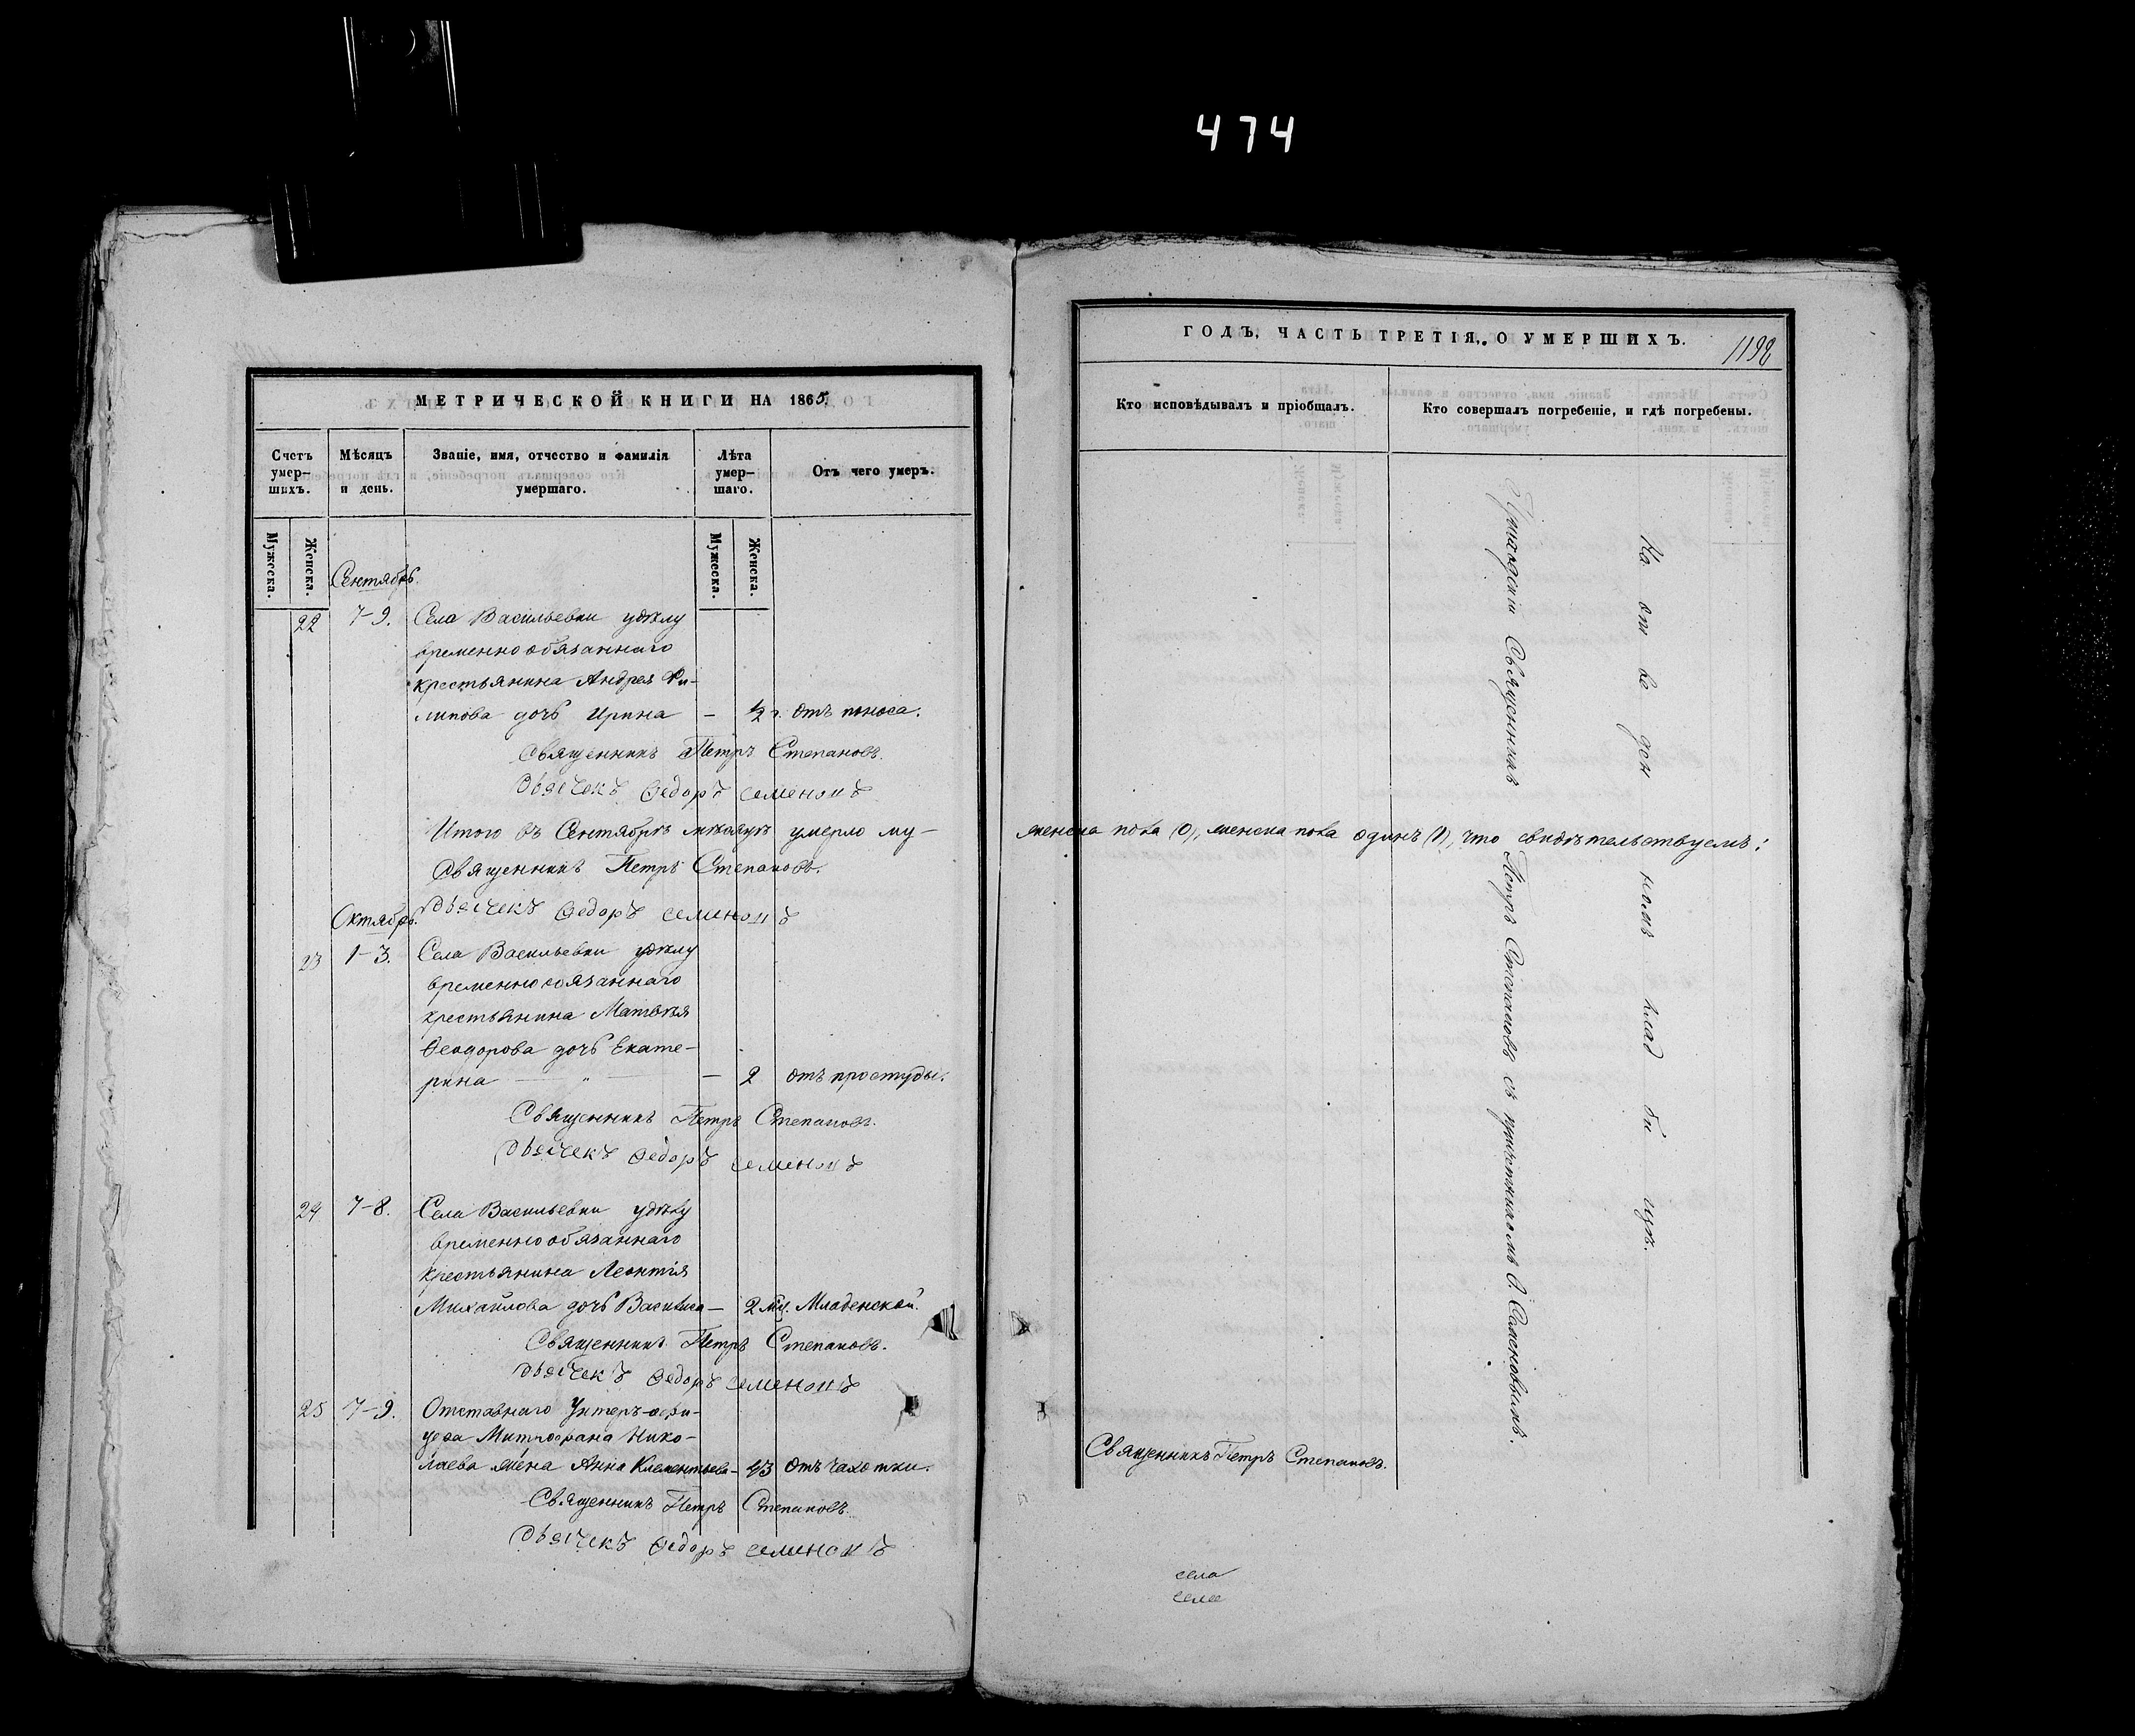 474
МЕТРИЧЕСКОЙ КНИГИ НА 1865.
Счетъ умер-шихъ.
Мѣсяцъ и день.
Званіе, имя, отчество и фамилія умершаго.
Лѣта умер-шаго.
Отъ чего умеръ.
Мужеска.
Женска.
Мужеска.
Женска.
Сентябрь.
22 7-9. Села Васильевки
временнообязаннаго
крестьянина Андрея Фи-
липова дочь Ирина — ½ г. отъ поноса.
Священникъ Петръ Степановъ.
Дьячекъ Ѳедоръ Семеновъ
Итого въ Сентябрѣ мѣсяцѣ умерло му-
Священникъ Петръ Степановъ.
Дьячекъ Ѳедоръ Семеновъ
Октябрь.
23 1-3. Села Васильевки
временнообязаннаго
крестьянина Матвѣя
Ѳеодорова дочь Екате-
рина — „ — — 2 отъ простуды.
Священникъ Петръ Степановъ.
Дьячекъ Ѳедоръ Семеновъ
24 7-8. Села Васильевки
временнообязаннаго
крестьянина Леонтія
Михайлова дочь Василиса — 2 мц. Младенской.
Священникъ Петръ Степановъ.
Дьячекъ Ѳедоръ Семеновъ
25 7-9. Отставнаго Унтеръ-офи-
цера Митрофана Нико-
лаева жена Анна Клементьева — 43 отъ чахотки.
Священникъ Петръ Степановъ.
Дьячекъ Ѳедоръ Семеновъ
ГОДЪ, ЧАСТЬ ТРЕТІЯ, О УМЕРШИХЪ.
1198
Кто исповѣдывалъ и пріобщалъ.
Кто совершалъ погребеніе, и гдѣ погребены.
Приходскій Священникъ Петръ Степановъ съ причетникомъ Ѳ. Семеновымъ.
На отведенномъ кладбищѣ.
жеска пола (0), женска пола одинъ (1), что свидѣтельствуемъ:
Священникъ Петръ Степановъ.
села
селе